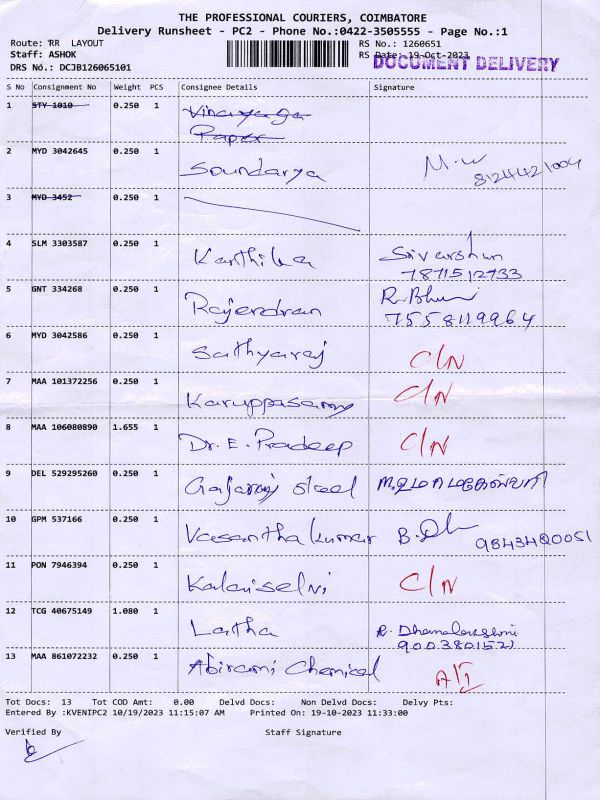 THE PROFESSIONAL COURIERS, COIMBATORE
Delivery Runsheet - PC2 - Phone No.:0422-3505555 - Page No.:1
Route: RR LAYOUT RS No.: 1260651
Staff: ASHOK RS Date: 19-Oct-2023
DOCUMENT DELIVERY
DRS No.: DCJB126065101
S No Consignment No Weight PCS Consignee Details Signature
1 STY 1010 0.250 1 Vinayaga
Paper
2 MYD 3042645 0.250 1 Soundarya M.W
8124421004
3 MYD 3452 0.250 1
4 SLM 3303587 0.250 1 Karthika Srivarshan
7871512733
5 GNT 334268 0.250 1 Rajendran R.Bhuvi
7558119964
6 MYD 3042586 0.250 1 Sathyaraj C/N
7 MAA 101372256 0.250 1 Karuppasamy C/N
8 MAA 106080890 1.655 1 Dr. E. Pradeep C/N
9 DEL 529295260 0.250 1 Gajaraj steel ம.உமாமகேஸ்வரி
10 GPM 537166 0.250 1 Vasantha kumar B.
9843420051
11 PON 7946394 0.250 1 Kalaiselvi C/N
12 TCG 40675149 1.080 1 Latha R. Dhanalakshmi
9003801521
13 MAA 861072232 0.250 1 Abirami Chemical
Tot Docs: 13 Tot COD Amt: 0.00 Delvd Docs: Non Delvd Docs: Delvy Pts:
Entered By :KVENIPC2 10/19/2023 11:15:07 AM Printed On: 19-10-2023 11:33:00
Verified By Staff Signature